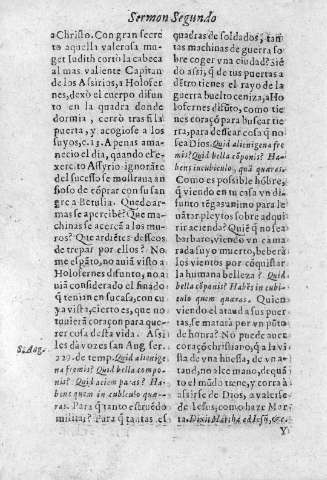 Sermon Segundo
a Christo. Con gran secre
to aquella valerosa mu-
ger Iudith cortò la cabeça
al mas valiente Capitan
de los Assirios, a Holofer-
nes, dexò el cuerpo difun
to en la quadra donde
dormia, cerrò tras si la
puerta, y acogiose a los
suyos, c. 13. Apenas ama-
necio el dia, quando el e-
xercto Assyrio ignorãte
del sucesso se mostraua an
sioso de cõprar con su san
gre a Betulia. Quedo ar-
mas se apercibe? Que ma-
chinas se acercã a los mu-
ros? Que ardiẽtes desseos
de trepar por ellos? No
me espãto, no auiã visto a
Holofernes difunto, no a-
uiã considerado el finado
q̃ tenian en su casa, con cu
ya vista, cierto es, que no
tuuierã coraçon para que-
rer cosa desta vida. Assi
les da vozes san Aug. ser.
S. Aug.
220. de temp. Quid alienige
na fremis? Quid bella compo-
nis? Quid aciem paras? Ha-
bens quem in cubiculo quæ-
ras. Para q̃ tanto estruẽdo
militar? Para q̃ tantas es
quadras de soldados, tan
tas machinas de guerra so
bre coger vna ciudad? siẽ
do assi, q̃ de tus puertas a
dẽtro tienes el rayo de la
guerra buelto ceniza, a Ho
lofernes difũto, como tie
nes coraçõ para buscar tie
rra, para dessear cosa q̃ no
sea Dios. Quid alienigena fre
mis? Quid bella cõponis? Ha-
bens in cubiculo, quẽ quæras.
Como es possible hõbre,
q̃ viendo en tu casa vn di
funto tẽgas animo para le
uãtar pleytos sobre adqui
rir aziẽda? Quiẽ q̃ no sea
barbaro, viendo vn cama
rada suyo muerto, beberà
los vientos por cõquistar
la humana belleza? Quid
bella cõponis? Habẽs in cubi-
culo quem quæras. Quien
viendo el ataud a sus puer
tas, se matarà por vn pũto
de honra? No puede auer
coraçõ christiano, q̃ a la vi
sta de vna huessa, de vn a-
taud, no alce mano, de quã
to el mũdo tiene, y corra à
assirse de Dios, a valerse
de Iesus, como haze Mar
ta. Dixit Martha ad Iesũ, &c.
Y